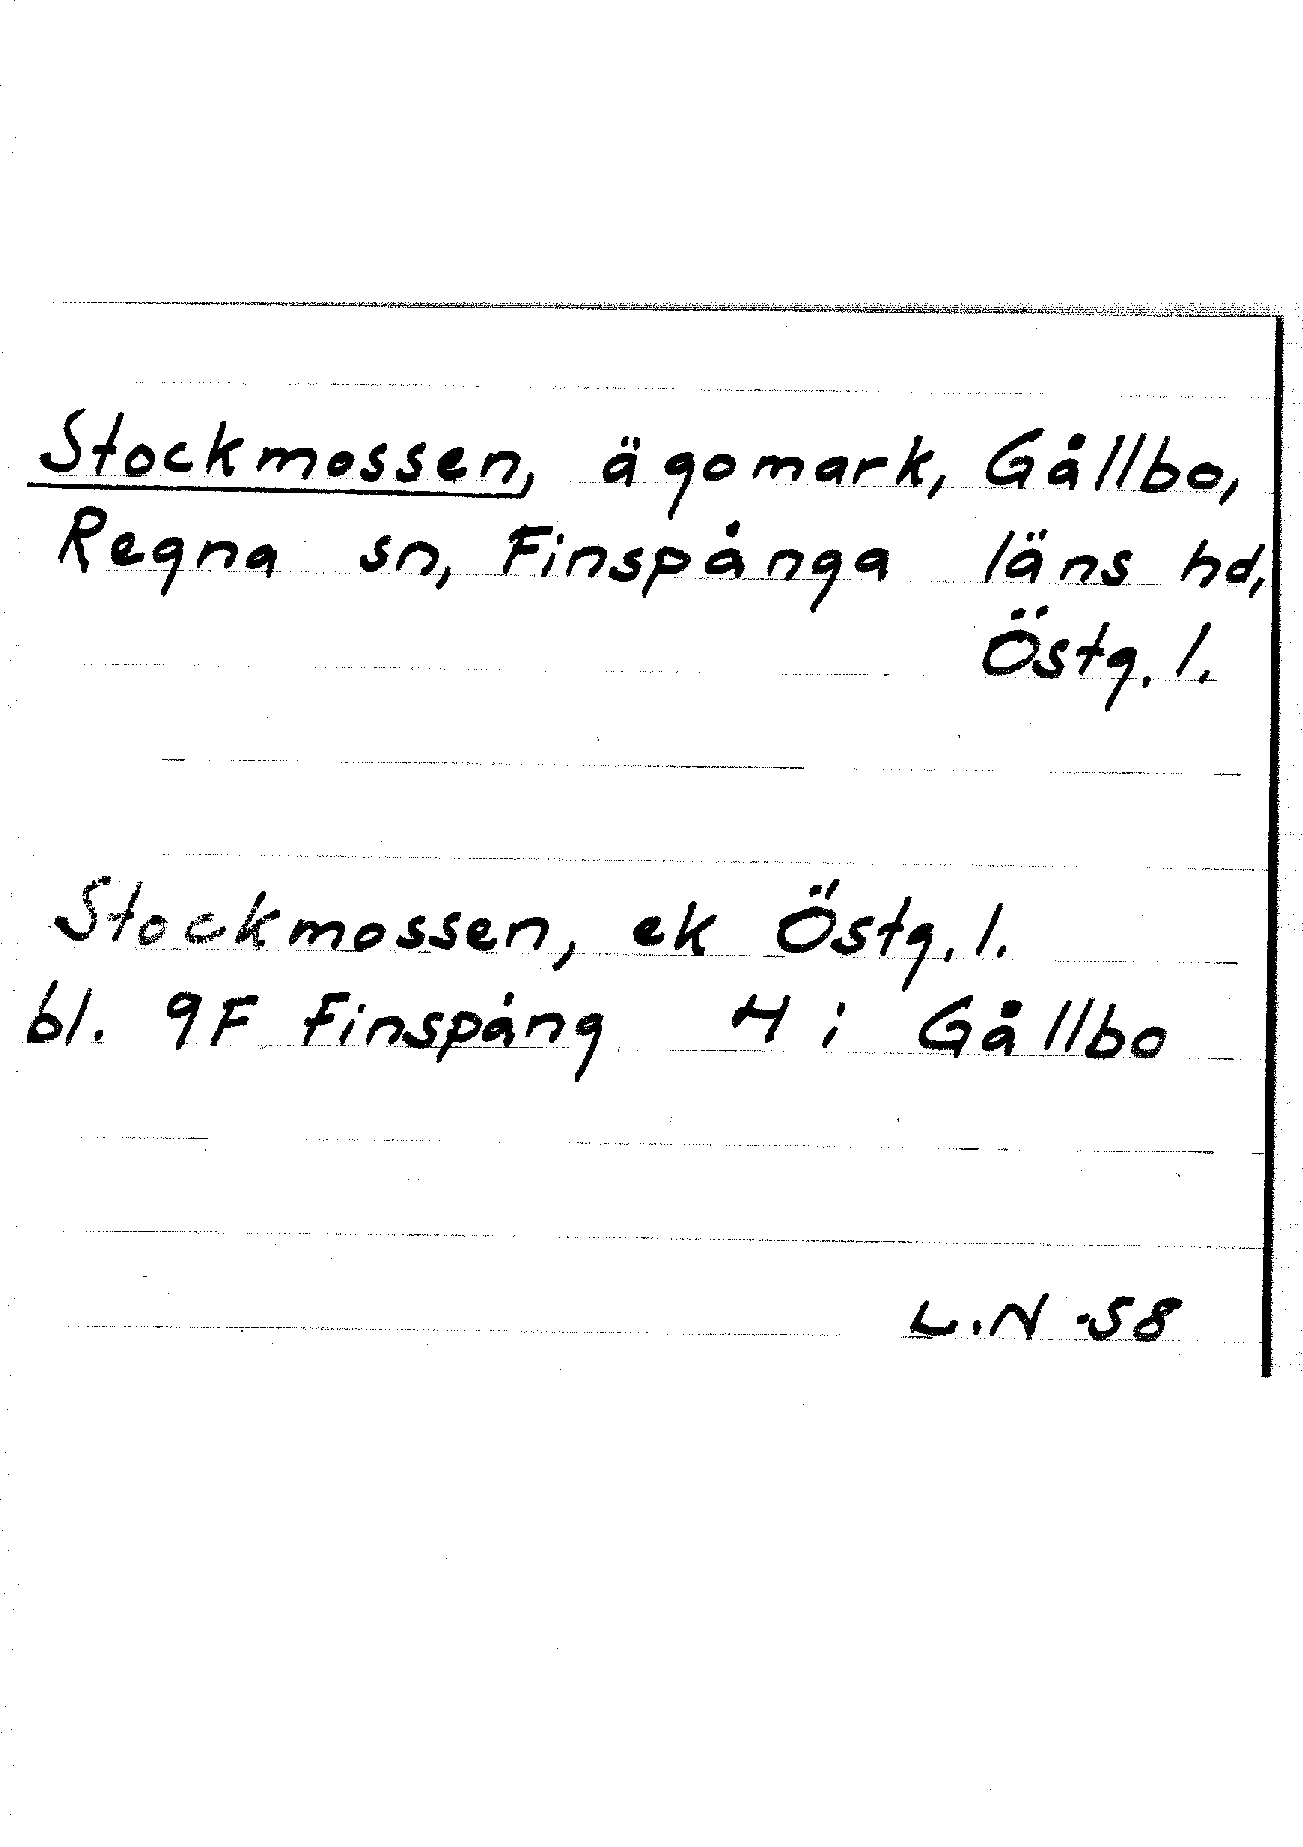 Stockmossen, ägomark, Gållbo,
Regna sn, Finspånga läns hd,
Östg. l.
Stockmossen, ek Östg. l.
bl. 9F Finspång H i Gållbo
L.N -58